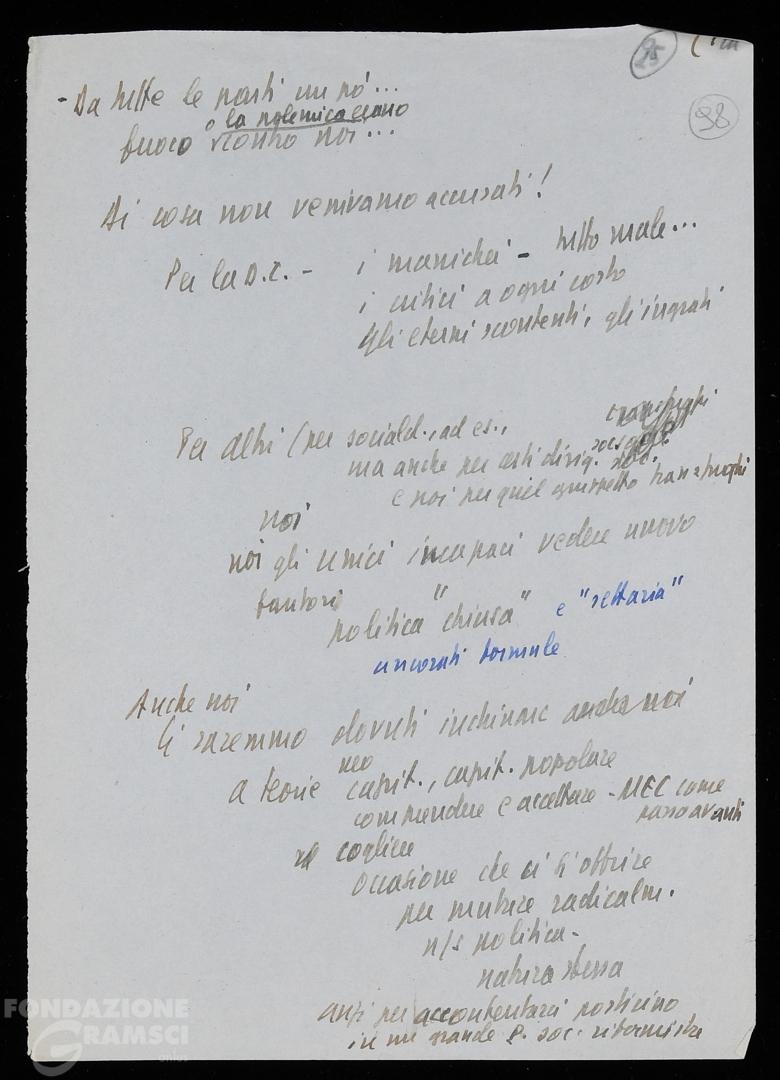 25
98
- Da tutte le parti un pó...
o la polemica erano
fuoco contro noi...
Di cosa non venivamo accusati!
Per la D.C. - i manichei - tutto male...
i critici a ogni costo
gli eterni scontenti, gli ingrati
Per altri (per sociald., ad es.,
ma anche per certi dirig. soc.
e noi per quel gruppetto transfughi
noi
noi gli unici incapaci vedere nuovo
fautori politica "chiusa" e "settaria"
ancorati formule
Anche noi
Ci saremmo dovuti inchinare anche noi
neo
a teorie capit., capit. popolare
comprendere e accettare - MEC come
passo avanti
cogliere
occasione che ci si offrire
per mutare radicalm.
n/s politica -
natura stessa
anzi per accontentarci posticino
in un grande P. soc. riformista
FONDAZIONE
GRAMSCI
onlus